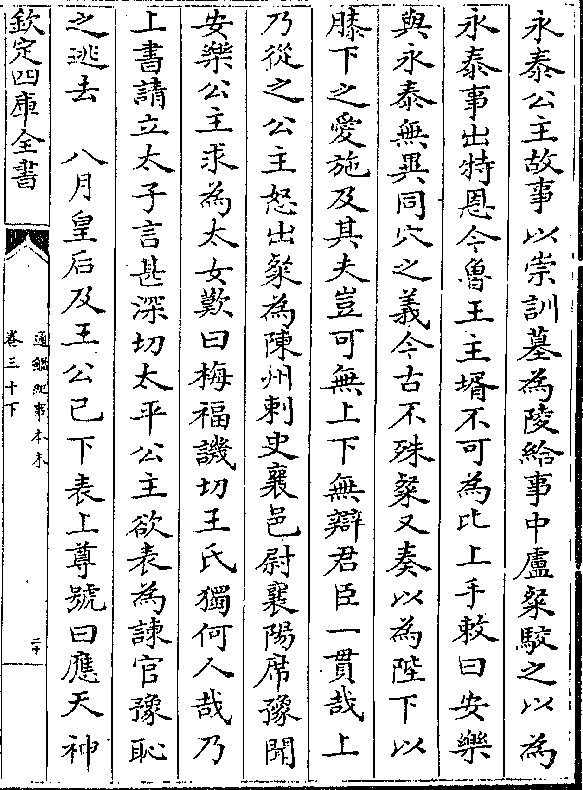 永泰公主故事以崇訓墓為陵給事中盧粲駮之以為
永泰事出特恩今魯王主壻不可為比上手敕曰安樂
與永泰無異同穴之義今古不殊粲又奏以為陛下以
膝下之愛施及其夫豈可無上下無辯君臣一貫哉上
乃從之公主怒出粲為陳州刺史襄邑尉襄陽席豫聞
安樂公主求為太女歎曰梅福譏切王氏獨何人哉乃
上書請立太子言甚深切太平公主欲表為諫官豫恥
之逃去 八月皇后及王公已下表上尊號曰應天神
欽定四庫全書
通鑑紀事本末
卷三十下
二十